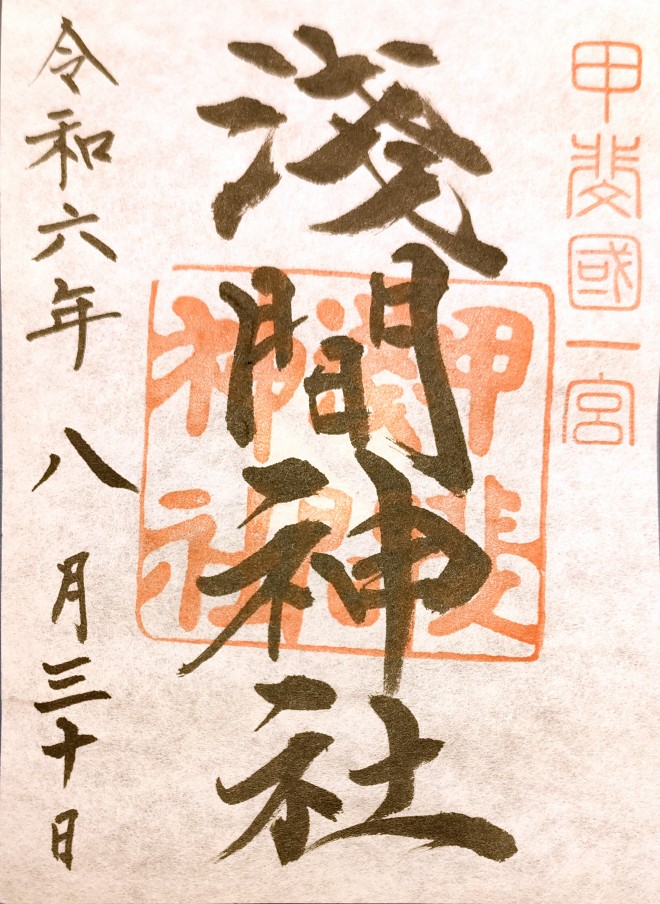 甲斐國一宮
淺間神社
甲斐
淺間
神社
令和六年八月三十日